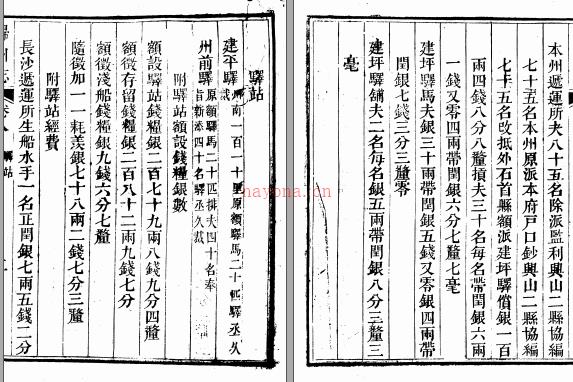 本州遞運所夫八十五名除派監利興山二縣協編
七十五名本州原派本府戶口鈔興山二縣協編
七十五名改抵外石首縣額派建坪驛償銀一百
兩四錢八分八釐損夫三十名每名帶閏銀六兩
一錢又零四兩帶閏銀六分七釐七毫
建坪驛馬夫銀三十兩帶閏銀五錢又零銀四兩帶
閏銀七錢三分三釐零
建坪驛舖夫二名每名銀五兩帶閏銀八分三釐三
毫
驛站
建平驛州南一百一十里原額驛馬二十匹驛丞久
裁
州前驛原額驛馬二十匹損夫四十名奉
旨新添四十名驛丞久裁
附驛站額設錢糧銀數
額設驛站錢糧銀二百七十九兩八錢九分四釐
額徵存留錢糧銀二百八十二兩九錢七分
額徵淺船錢糧銀九錢六分七釐
隨徵加一一耗羨銀七十八兩二錢七分三釐
附驛站經費
長沙遞運所生船水手一名正閏銀七兩五錢二分
歸州志
卷八
驛站
hayona.cn